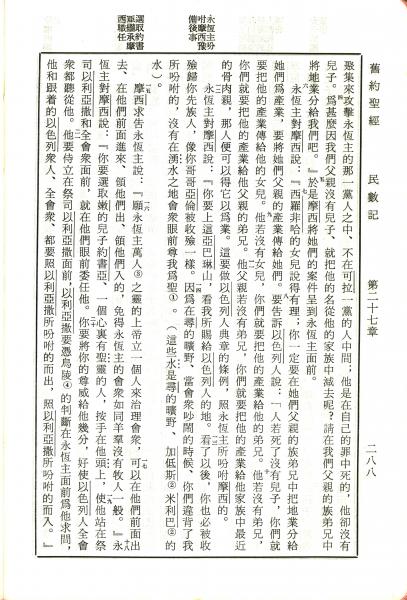 舊約聖經　民數記　第二十七章　二八八
聚集來攻擊永恆主的那一黨人之中、不在可拉一黨的人中間；他是在自己的罪中死的，他卻沒有
兒子。爲甚麼因我們父親沒有兒子、就把他的名從他的家族中減去呢？請在我們父親的族弟兄中
將地業分給我們吧。』於是摩西將她們的案件呈到永恆主面前。
永恆主對摩西說：『西羅非哈的女兒說得有理；你一定要在她們父親的族弟兄中把地業分給
她們爲產業，要將她們父親的產業傳給她們。要告訴以色列人說：「人若死了沒有兒子，你們就
要把他的產業傳給他的女兒。他若沒有女兒，你們就要把他的產業給他的弟兄。他若沒有弟兄，
你們就要把他的產業給他父親的弟兄。他父親若沒有弟兄，你們就要把他的產業給他家族中最近
的骨肉親，那人便可以得它以爲業。這要做以色列人典章的條例，照永恆主所吩咐摩西的。
永恆主對摩西說：『你要上這亞巴琳山，看我所賜給以色列人的地。看了以後，你也必被收
殮歸你先族人，像你哥哥亞倫被收殮一樣。因爲在尋的曠野、當會衆吵鬧的時候、你們違背了我
所吩咐的，沒有在湧水之地會衆眼前尊我爲聖①。』（這些水是尋的曠野、加低斯②米利巴②的
水）。
摩西求告永恆主說：『願永恆主萬人③之靈的上帝立一個人來治理會衆，可以在他們前面出
去、在他們前面進來、領他們出、領他們入的，免得永恆主的會衆如同羊羣沒有牧人一般。』永
恆主對摩西說：『你要選取嫩的兒子約書亞、一個心裏有聖靈的人，按手在他頭上，使他站在祭
司以利亞撒和全會衆面前，就在他們眼前委任他。你要將你的尊威給他幾分，好使以色列人全會
衆都聽從他。他要侍立在祭司以利亞撒面前，以利亞撒要憑烏陵④的判斷在永恆主面前爲他求問，
他和跟着的以色列衆人、全會衆、都要照以利亞撒所吩咐的而出，照以利亞撒所吩咐的而入。』
永恆主吩
咐摩西豫
備後事
選取約書
亞繼承摩
西職任